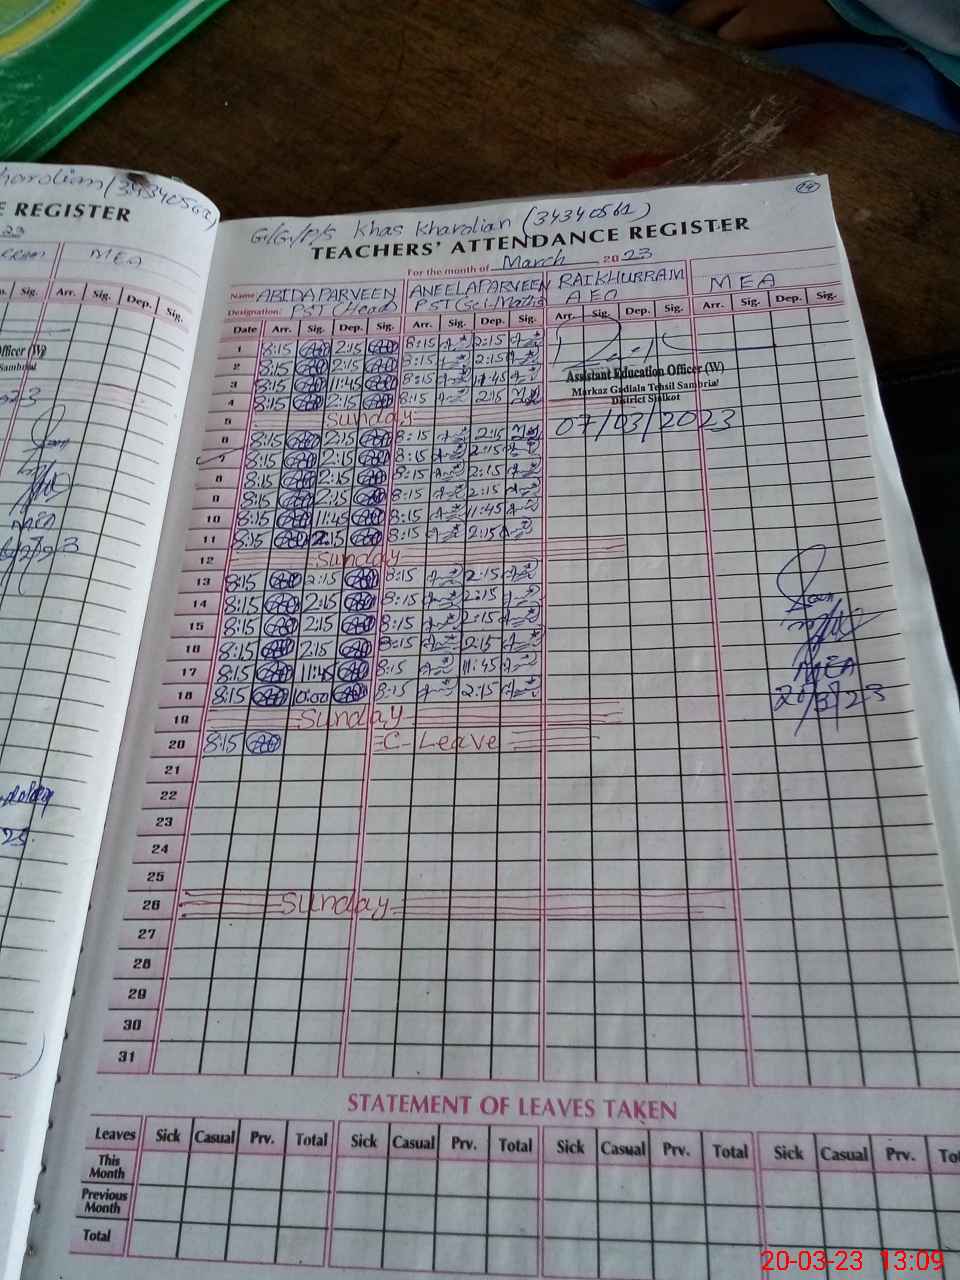 kharolian (34340562)
E REGISTER
23
MEA
Sig. Arr. Sig. Dep. Sig.
Officer (W)
Sambrial
MEA
29
G/G/P/S Khas Kharolian (34340562)
TEACHERS' ATTENDANCE REGISTER
For the month of March 2023
Name ABIDA PARVEEN ANEELA PARVEEN RAI KHURRAM MEA
Designation: PST (Head) PST (Sci-Math) AEO
Date Arr. Sig. Dep. Sig. Arr. Sig. Dep. Sig. Arr. Sig. Dep. Sig. Arr. Sig. Dep. Sig.
1 8:15 2:15 8:15 2:15
2 8:15 2:15 8:15 2:15
Assistant Education Officer (W)
3 8:15 11:45 8:15 11:45
Markaz Gadiala Tehsil Sambrial
4 8:15 2:15 8:15 2:15
District Sialkot
5 Sunday
07/03/2023
6 8:15 2:15 8:15 2:15
7 8:15 2:15 8:15 2:15
8 8:15 2:15 8:15 2:15
9 8:15 2:15 8:15 2:15
10 8:15 11:45 8:15 11:45
11 8:15 2:15 8:15 2:15
12 Sunday
13 8:15 2:15 8:15 2:15
14 8:15 2:15 8:15 2:15
15 8:15 2:15 8:15 2:15
16 8:15 2:15 8:15 2:15
17 8:15 11:45 8:15 11:45
MEA
18 8:15 10:00 8:15 2:15
20/3/23
19 Sunday
20 8:15 C-Leave
21
22
23
24
25
26 Sunday
27
28
29
30
31
STATEMENT OF LEAVES TAKEN
Leaves Sick Casual Prv. Total Sick Casual Prv. Total Sick Casual Prv. Total Sick Casual Prv. To
This Month
Previous Month
Total
20-03-23 13:09